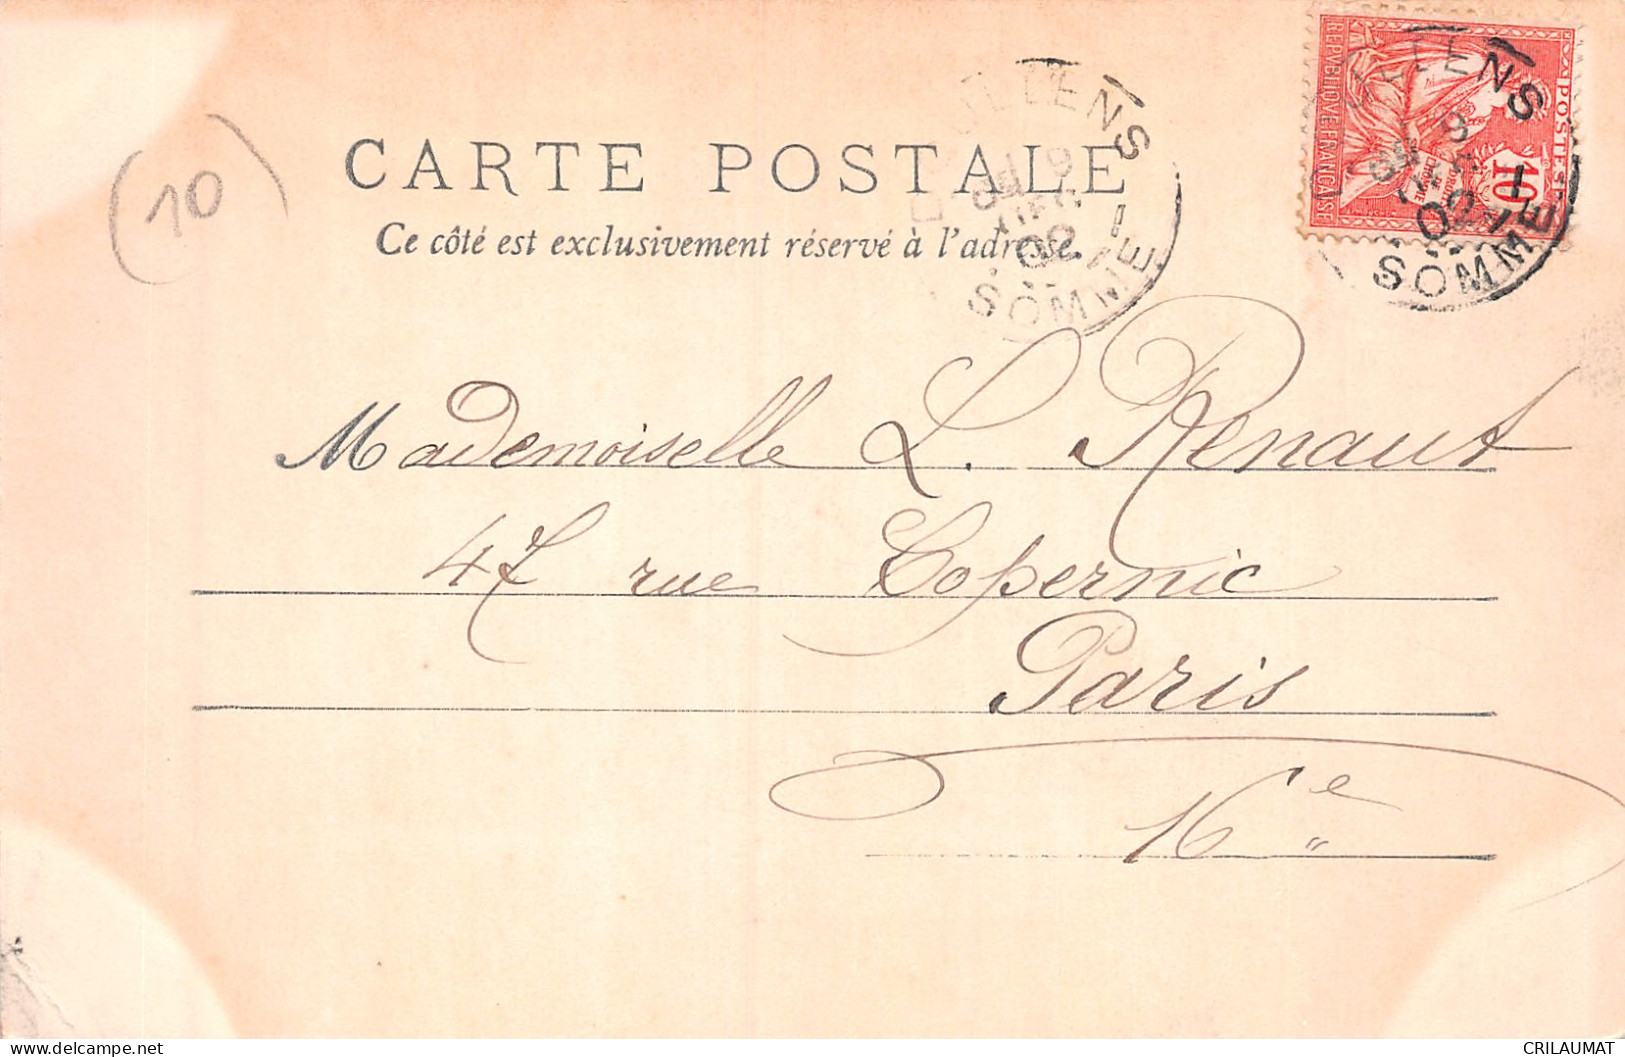 (10)
CARTE POSTALE
Ce côté est exclusivement réservé à l'adresse.
ULLENS
02
SOMME
REPVBLIQVE FRANÇAISE
POSTES
10
ULLENS
02
SOMME
Mademoiselle L. Renaut
47 rue Copernic
Paris
16e
delcampe.net
CRILAUMAT